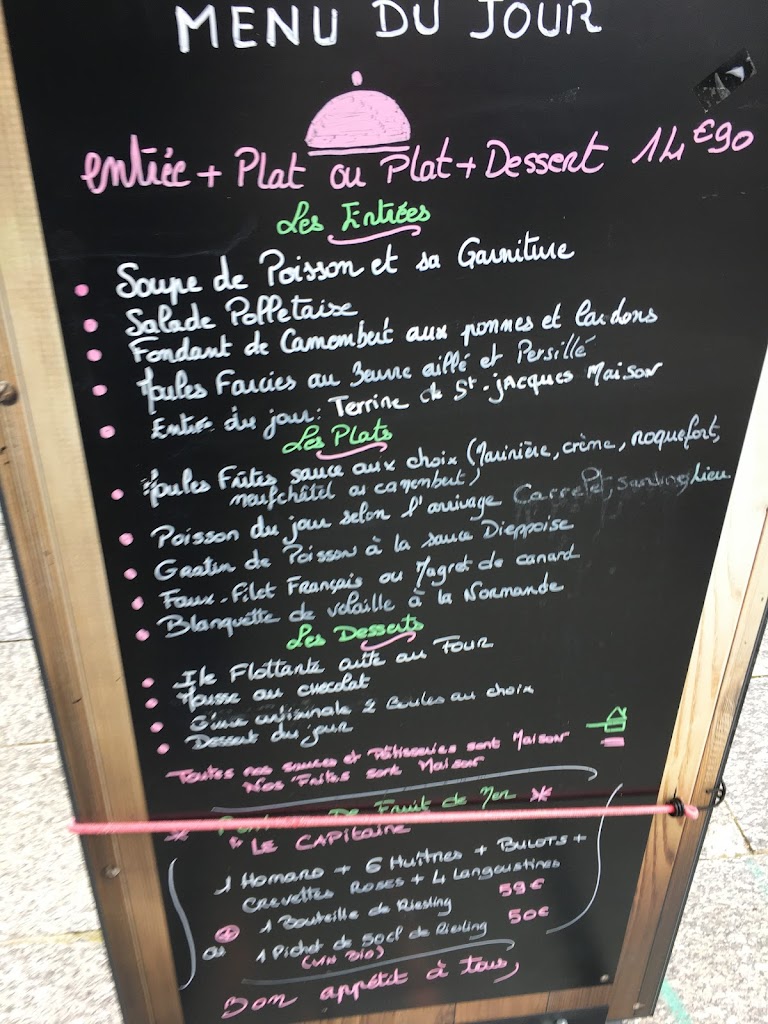 MENU DU JOUR
entrée + Plat ou Plat + Dessert 14€90
Les Entrées
Soupe de Poisson et sa Garniture
Salade Polletaise
Fondant de Camembert aux pommes et lardons
Moules Farcies au Beurre aillé et Persillé
Entrée du jour: Terrine de St-jacques Maison
Les Plats
Moules Frites sauce aux choix (Marinière, crème, roquefort,
neufchâtel ou camembert)
Poisson du jour selon l'arrivage Carrelet, Lieu
Gratin de Poisson à la sauce Dieppoise
Faux-Filet Français ou Magret de canard
Blanquette de volaille à la Normande
Les Desserts
Ile Flottante cuite au Four
Mousse au chocolat
Glace artisanale 2 Boules au choix
Dessert du jour
Toutes nos sauces et Pâtisseries sont Maison
Nos Frites sont Maison
* De Fruit de Mer *
"LE CAPitaine
1 Homard + 6 Huîtres + BULOTS +
CREVETTES ROSES + 4 Langoustines
+ 1 Bouteille de Riesling 59€
ou 1 Pichet de 50cl de Riesling 50€
(VIN BIO)
Bon appétit à tous,